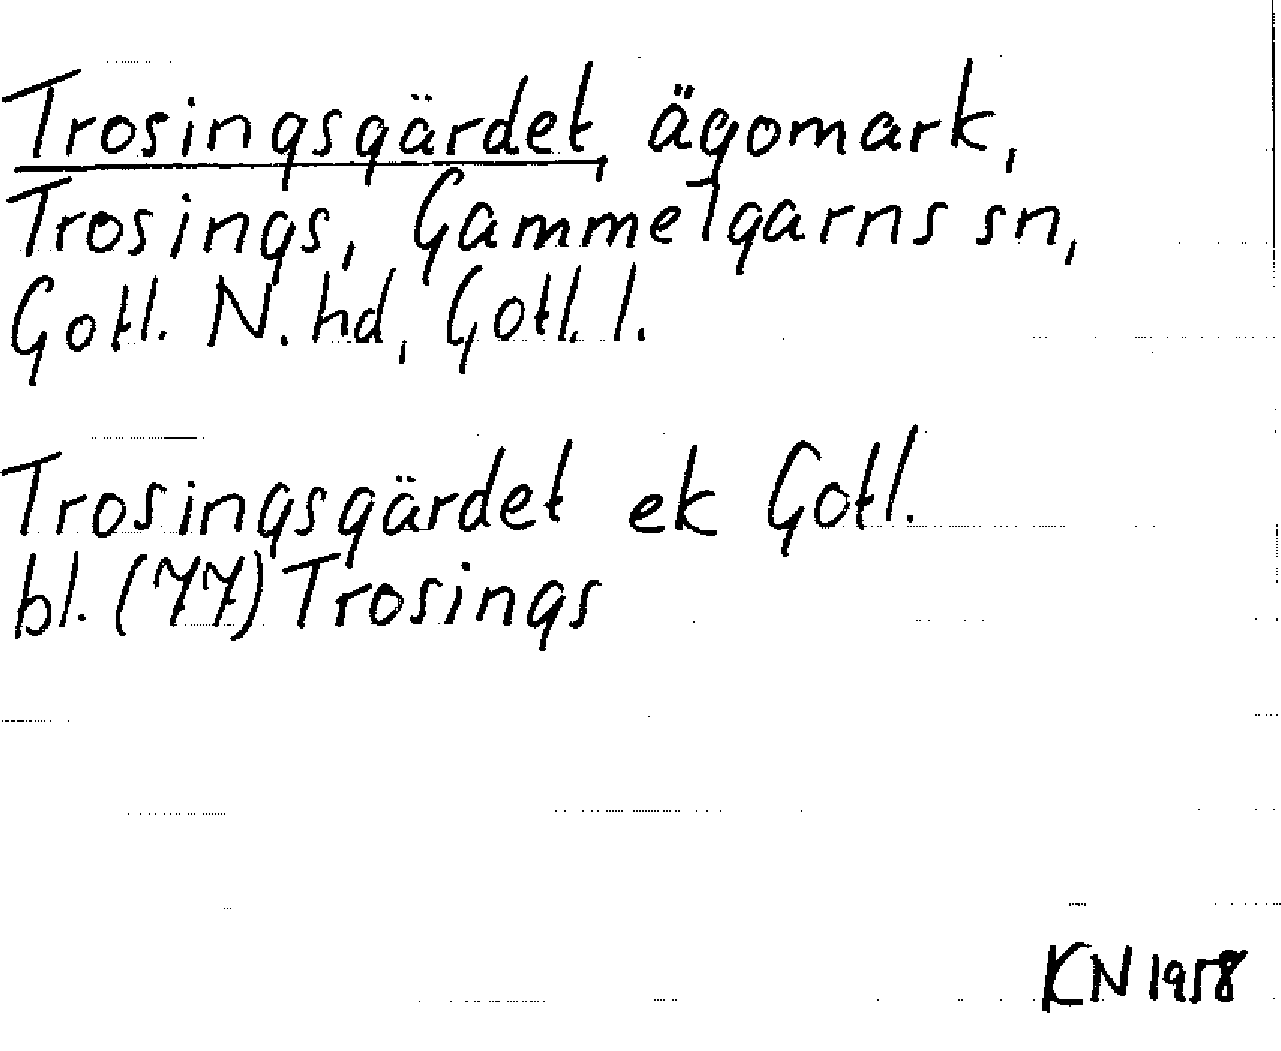 Trosingsgärdet, ägomark,
Trosings, Gammelgarns sn,
Gotl. N. hd, Gotl. l.
Trosingsgärdet ek Gotl.
bl. (77) Trosings
KN 1958